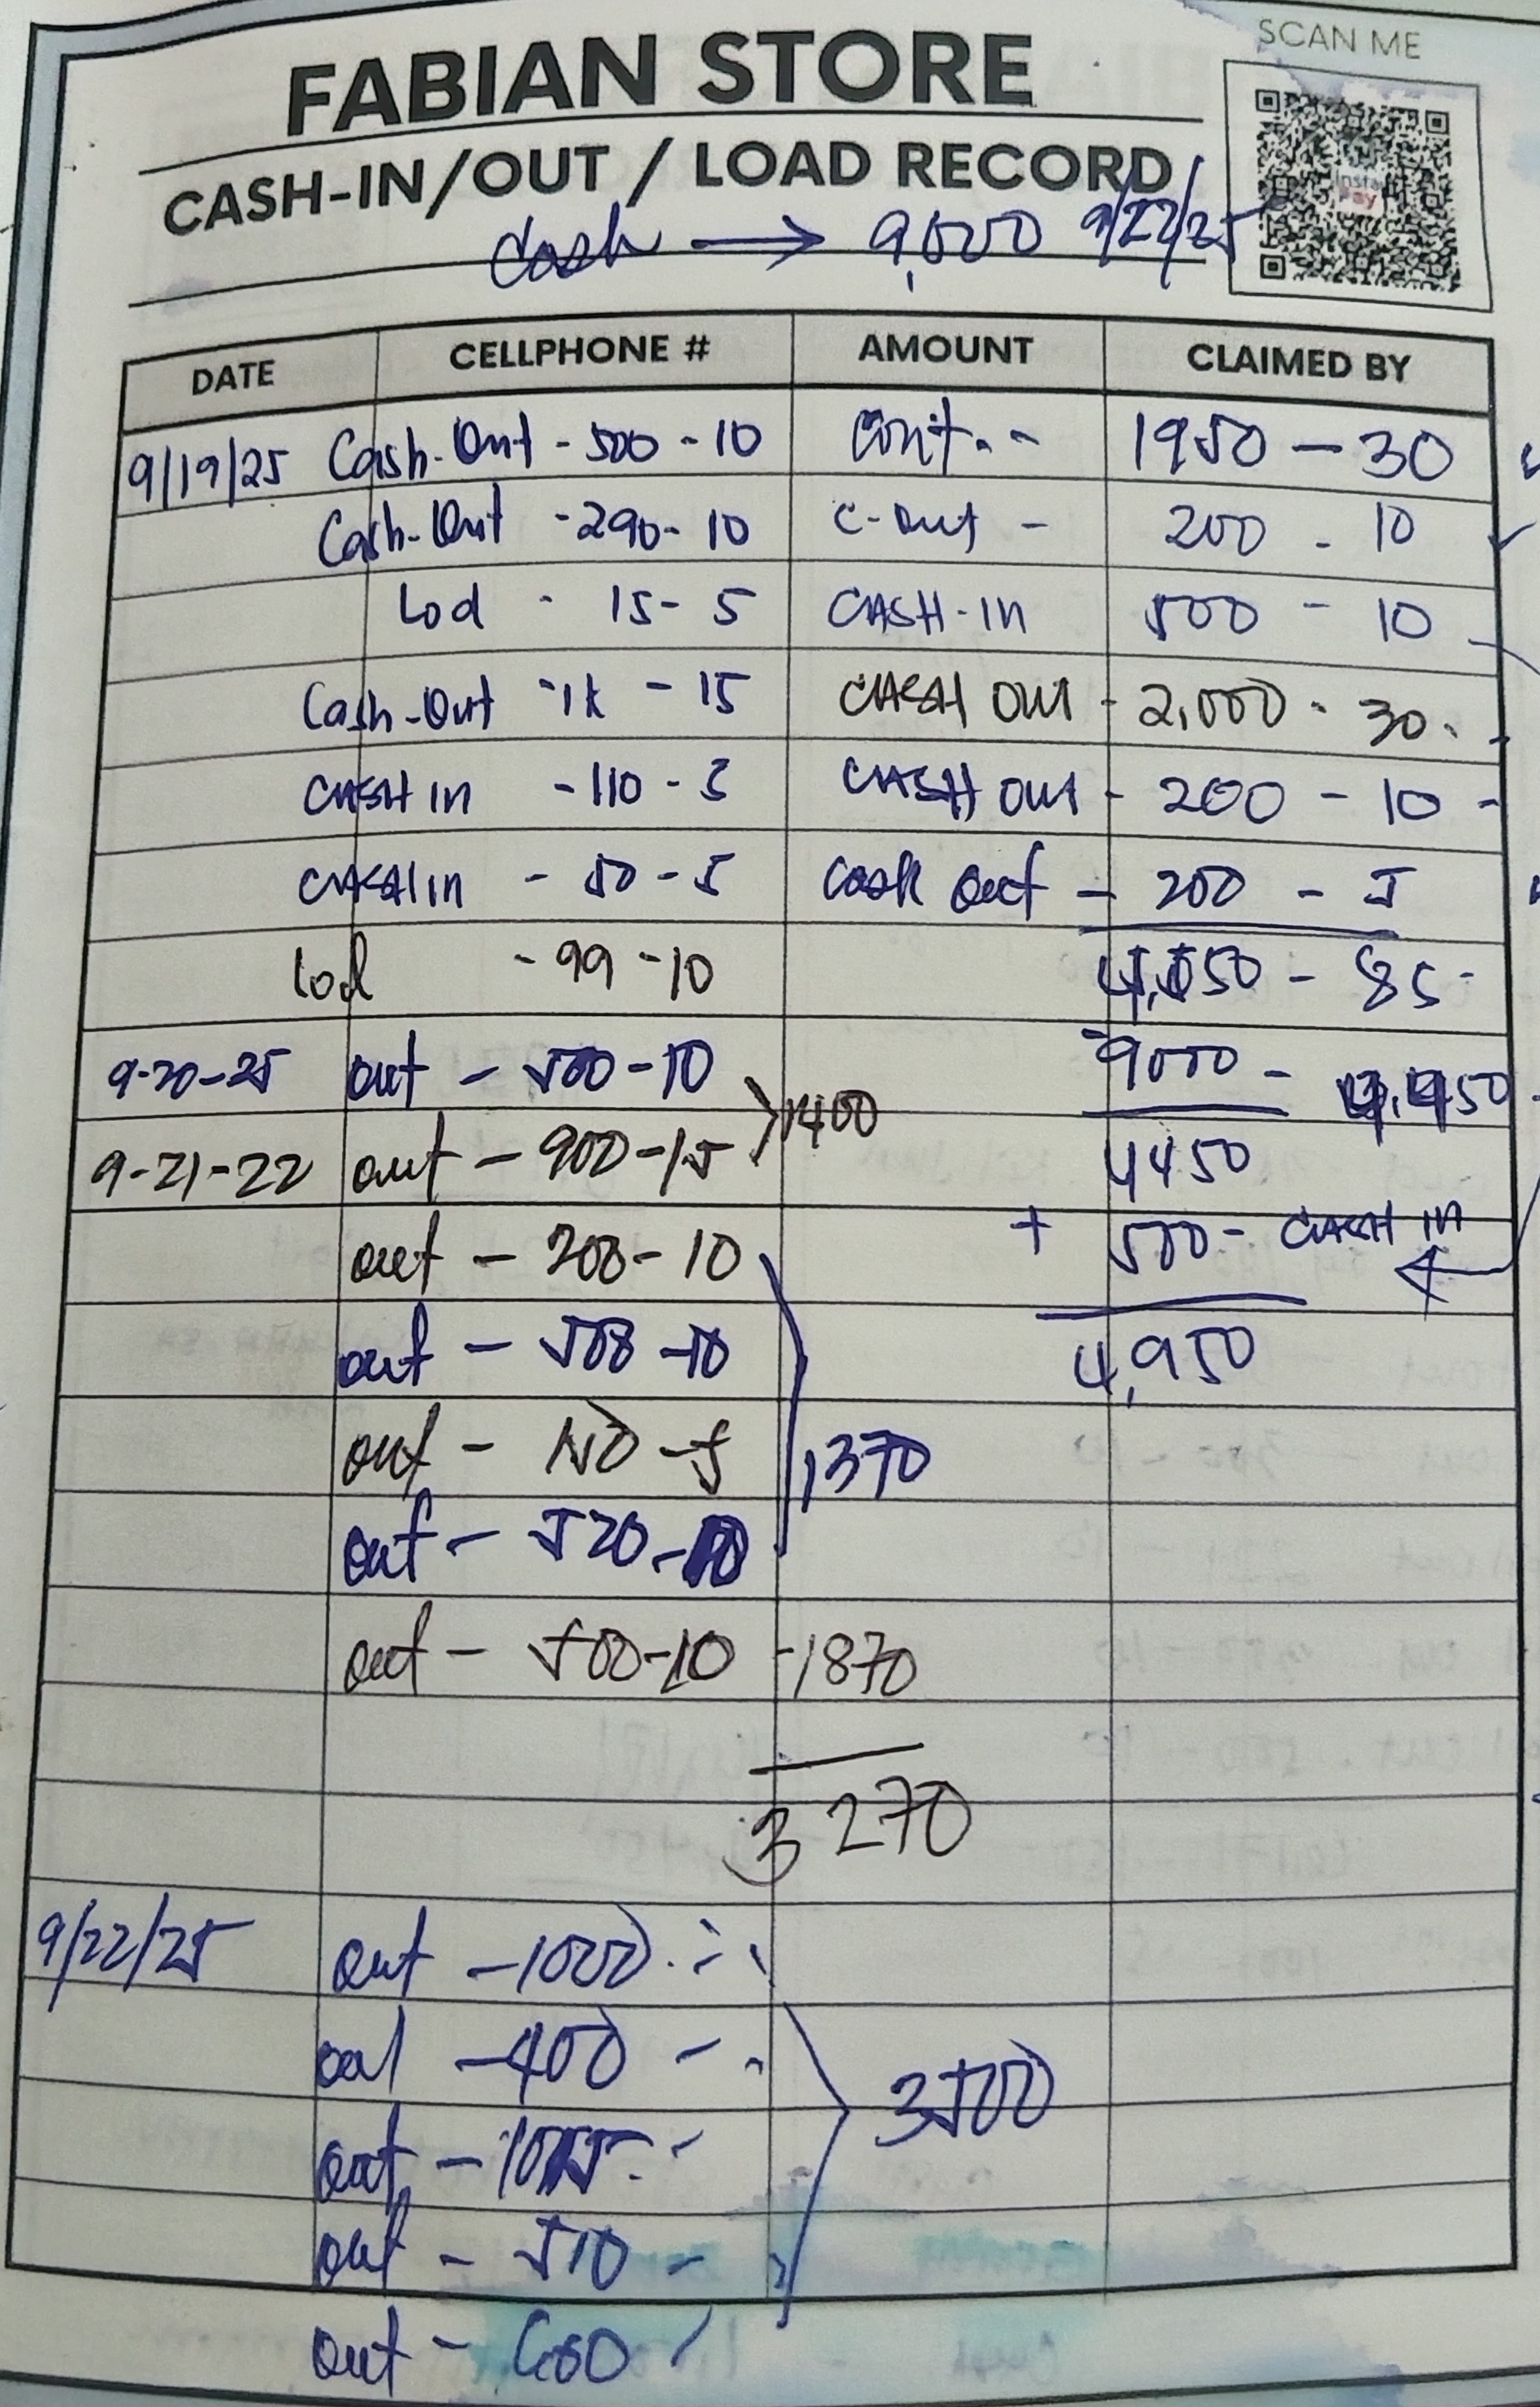 SCAN ME
FABIAN STORE
CASH-IN/OUT / LOAD RECORD
Cash → 9,000 9/22/25
Insta Pay
DATE CELLPHONE # AMOUNT CLAIMED BY
9/19/25 Cash-Out - 500 - 10 Cont. - 1950 - 30
Cash-Out - 290 - 10 C-out - 200 - 10
Lod - 15 - 5 CASH-IN 500 - 10
Cash-Out - 1k - 15 CASH OUT - 2,000 - 30
CASH IN - 110 - 5 CASH OUT - 200 - 10 -
CASH IN - 50 - 5 Cash Out - 200 - 5
Lod - 99 - 10 4,550 - 85 -
9-20-25 out - 500 - 10 9000 -
9-21-22 out - 900 - 15 1400 4450
out - 200 - 10 + 500 - CASH IN
out - 500 - 10 4,950
out - 150 - 5 1370
out - 520 - 10
out - 500 - 10 - 1870
3270
9/22/25 out - 1000
out - 400 - 3500
out -
out - 510 -
out -